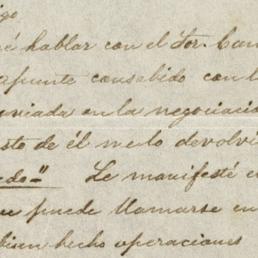 igo
é hablar con el Sor. Can
apunte consabido con l
nviada en la negociació
sto de él me lo devolvi
edo=" Le manifesté e
puede llamarse en
bien hecho operaciones